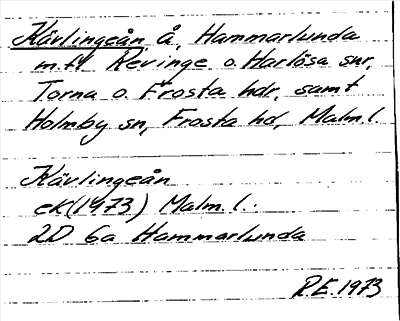 Kävlingeån, å, Hammarlunda
m.fl. Revinge o. Harlösa snr,
Torna o. Frosta hdr, samt
Holmby sn, Frosta hd, Malm.l.
Kävlingeån
ek(1973) Malm.l.
2D 6a Hammarlunda
R.E. 1973